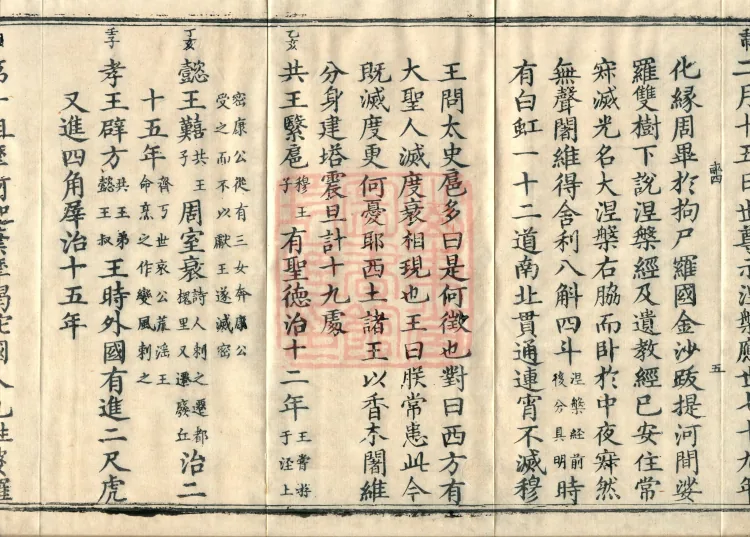 二月十五日世尊示涅槃應世七十九年
五
化緣周畢於拘尸羅國金沙跋提河間娑
羅雙樹下說涅槃經及遺教經已安住常
寂滅光名大涅槃右脇而卧於中夜寂然
無聲闍維得舍利八斛四斗涅槃經前後分具明時
有白虹一十二道南北貫通連宵不滅穆
王問太史扈多曰是何徵也對曰西方有
大聖人滅度衰相現也王曰朕常患此今
既滅度更何憂耶西土諸王以香木闍維
分身建塔震旦計十九處
乙亥共王繄扈穆王子有聖德治十二年王嘗游于涇上
密康公從有三女奔康公受之而不以獻王遂滅密
丁亥懿王囏共王子周室衰詩人刺之遷都槐里又遷廢丘治二
十五年齊丁世哀公荒淫王命烹之作變風刺之
壬子孝王辟方共王弟懿王叔王時外國有進二尺虎
又進四角犀治十五年
第一祖摩訶迦葉摩竭陀國人也姓婆羅